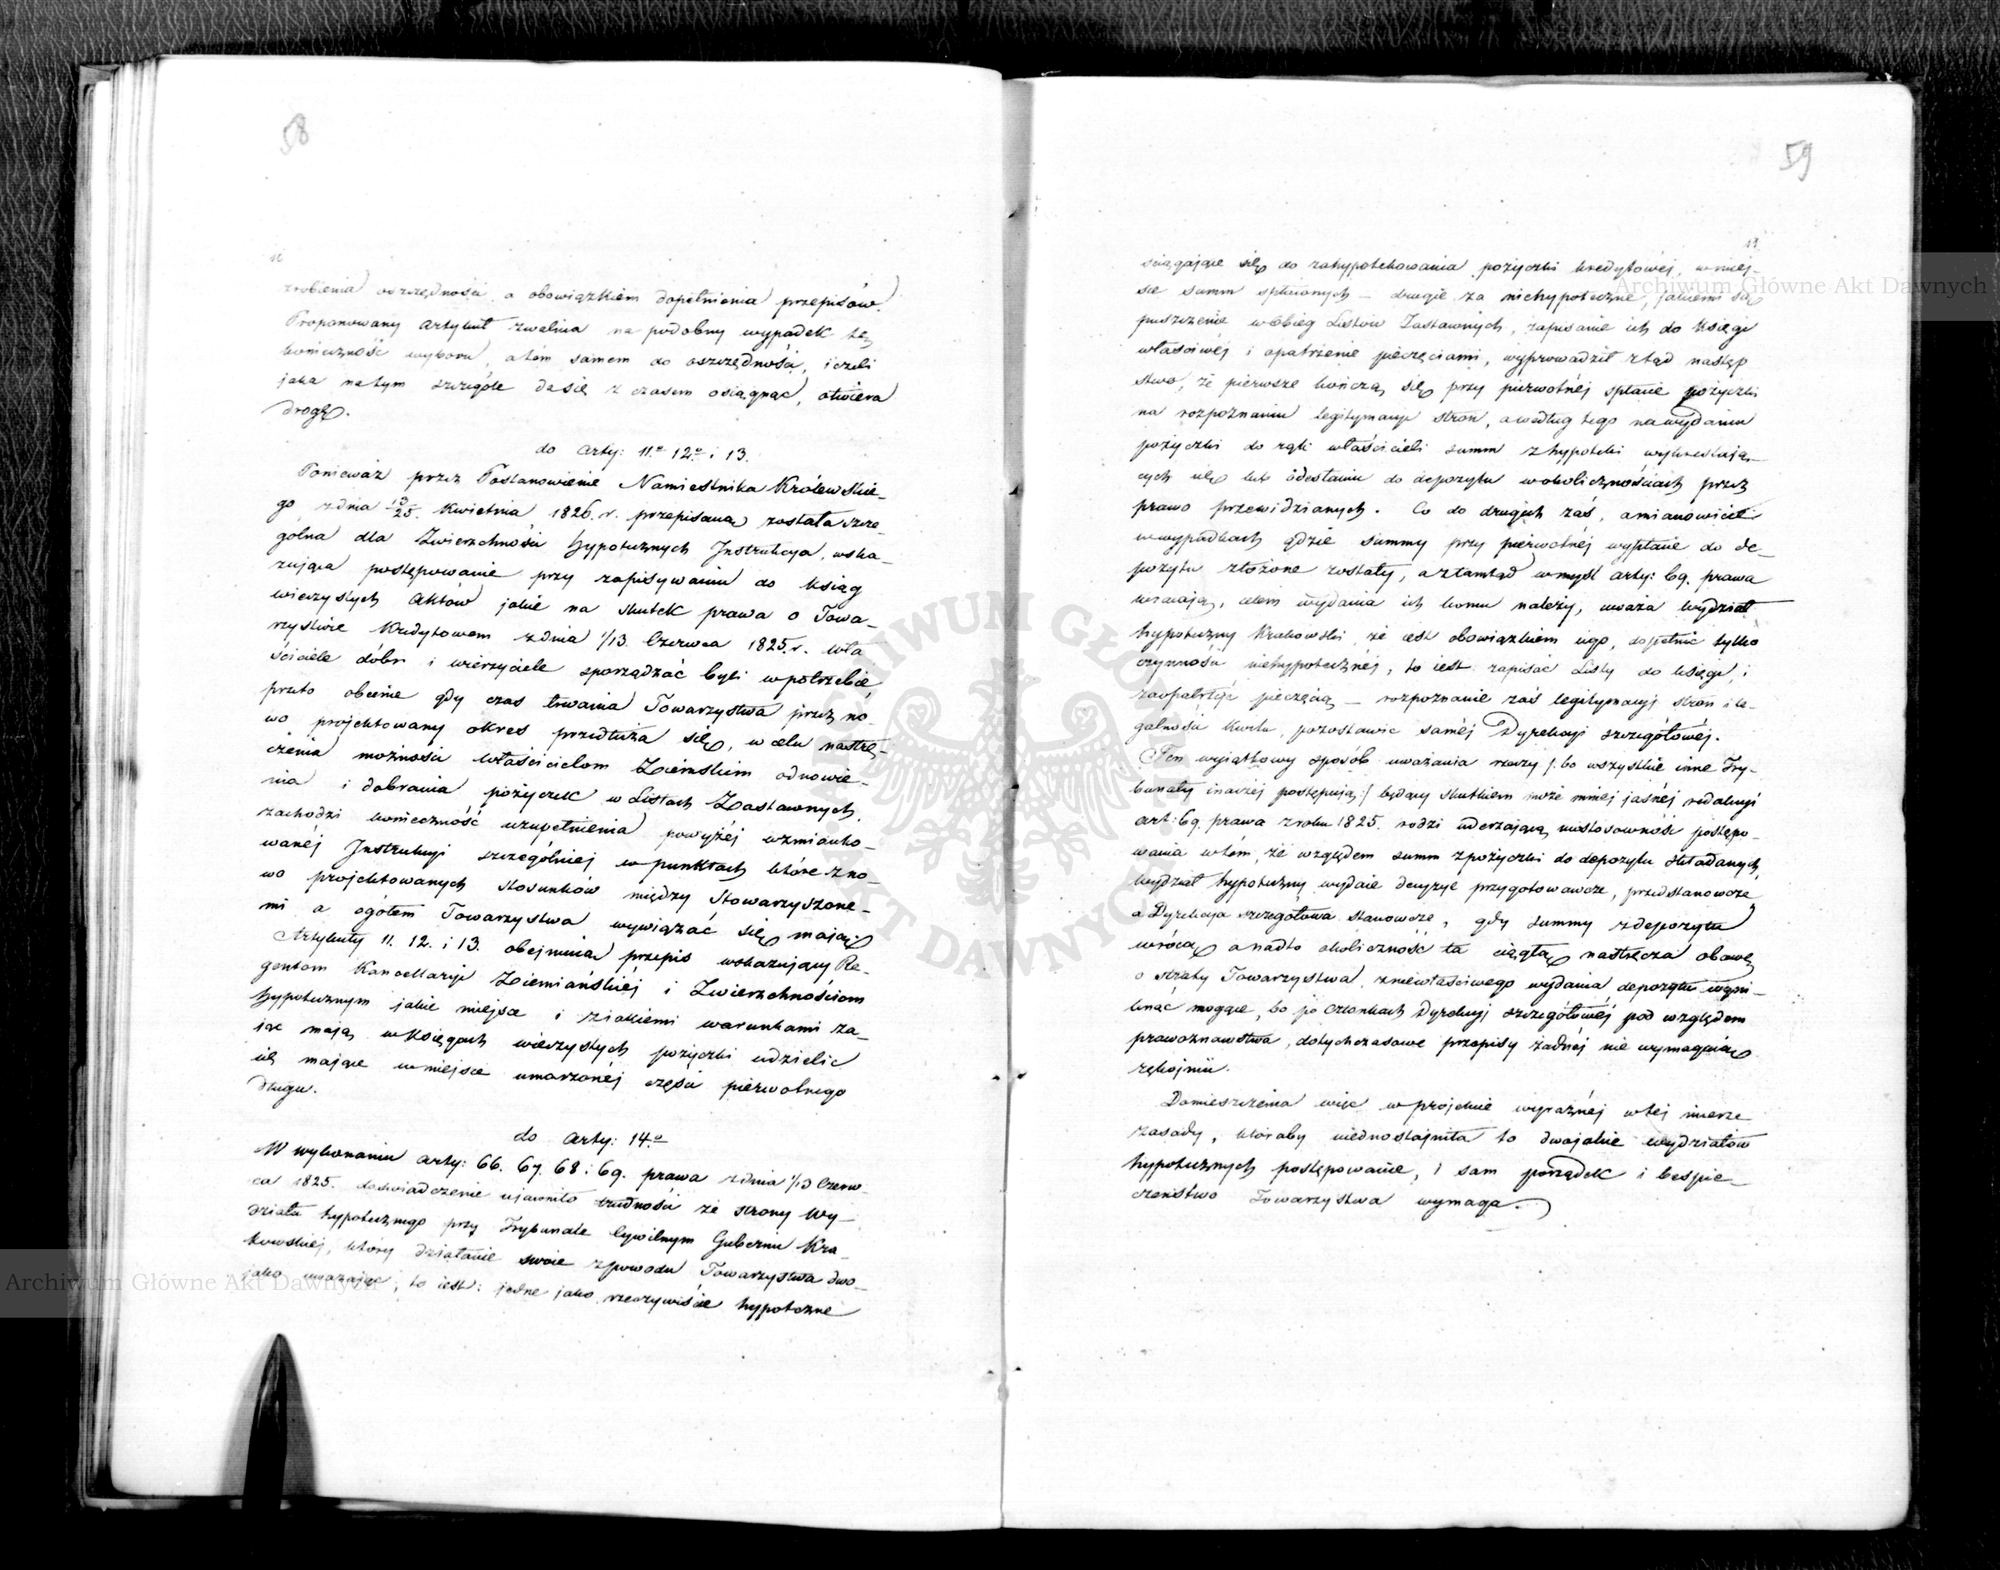 58
zrobienia oszczędności, a obowiązkiem dopełnienia przepisów.
Proponowany artykuł zwalnia na podobny wypadek tę
konieczność wyboru, a tém samem do oszczędności, jeżeli
jaka na tym szczególe da się z czasem osiągnąć, otwiera
drogę.
do arty: 11.º 12.º i 13.
Ponieważ przez Postanowienie Namiestnika Królewskie-
go z dnia 13/25. Kwietnia 1826. r. przepisana została szcze
gólna dla Zwierzchności Hypotecznych Instrukcya, wska-
zująca postępowanie przy zapisywaniu do ksiąg
wieczystych Aktów jakie na skutek prawa o Towa-
rzystwie Kredytowem z dnia 1/13. Czerwca 1825. r. wła
ściciele dóbr i wierzyciele sporządzać byli w potrzebie,
przeto obecnie gdy czas trwania Towarzystwa przez no-
wo projektowany okres przedłuża się, w celu nastrę-
czenia możności właścicielom Ziemskim odnowie-
nia i dobrania pożyczek w Listach Zastawnych,
zachodzi konieczność uzupełnienia powyżéj wzmianko-
wanéj Instrukcyi szczególniej w punktach które z no-
wo projektowanych stosunków między Stowarzyszone-
mi a ogółem Towarzystwa wywiązać się mają.
Artykuły 11. 12. i 13. obejmują przepis wskazujący Re-
gentom Kancellaryi Ziemiańskiéj i Zwierzchnościom
Hypotecznym jakie miejsce i z jakiemi warunkami za-
jąć mają w księgach wieczystych pożyczki udzielić
się mające w miejsce umorzonéj części pierwotnego
długu.
do arty: 14.º
W wykonaniu arty: 66. 67. 68. i 69. prawa z dnia 1/13 Czerw-
ca 1825. doświadczenie ujawniło trudności ze strony Wy-
działu hypotecznego przy Trybunale Cywilnym Gubernii Kra-
kowskiej, który działanie swoie z powodu Towarzystwa dwo-
jako uważając, to iest: jedne jako rzeczywiście hypoteczne
59
13.
ściągające się do zahypotekowania pożyczki kredytowéj, w miéj-
sce summ spłaconych – drugie za niehypoteczne, jakiemi są
puszczenie w obieg Listów Zastawnych, zapisanie ich do księgi
właściwej i opatrzenie pieczęciami, wyprowadził ztąd następ
stwo, że pierwsze kończą się przy pierwotnéj spłacie pożyczki
na rozpoznaniu legitymacyi stron, a według tego na wydaniu
pożyczki do rąk właścicieli summ z hypoteki wykreślają-
cych się lub odesłaniu do depozytu w okolicznościach przez
prawo przewidzianych. Co do drugich zaś, a mianowicie
w wypadkach gdzie summy przy pierwotnéj wypłacie do de-
pozytu złożone zostały, a ztamtąd w myśl arty: 69. prawa
wracają, celem wydania ich komu należy, uważa Wydział
hypoteczny Krakowski, że iest obowiązkiem iego, dopełnić tylko
czynności niehypotecznéj, to iest zapisać Listy do księgi, i
zaopatrzyć pieczęcią – rozpoznanie zaś legitymacyi stron i le-
galności kwitu, pozostawić saméj Dyrekcyi szczegółowéj.
Ten wyiątkowy sposób uważania rzeczy /: bo wszystkie inne Try-
bunały inaczéj postępują :/ będący skutkiem może mniéj jasnéj redakcyi
art: 69. prawa z roku 1825. rodzi uderzającą niestosowność postępo-
wania w tém, że względem summ z pożyczki do depozytu składanych,
Wydział hypoteczny wydaie decyzye przygotowawcze, przedstanowcze
a Dyrekcya szczegółowa stanowcze, gdy summy z depozytu
wrócą, a nadto okoliczność ta ciągłą nastręcza obawę
o straty Towarzystwa, z niewłaściwego wydania depozytu wyni-
knąć mogące, bo po Członkach Dyrekcyi szczegółowéj pod względem
prawoznawstwa, dotychczasowe przepisy żadnéj nie wymagaią
rękojmii.
Domieszczenia więc w projekcie wyraźnéj w téj mierze
zasady, któraby ujednostajniła to dwojakie wydziałów
hypotecznych postępowanie, i sam porządek i bespie-
czeństwo Towarzystwa wymaga.
Archiwum Główne Akt Dawnych
Archiwum Główne Akt Dawnych
ARCHIWUM GŁÓWNE AKT DAWNYCH